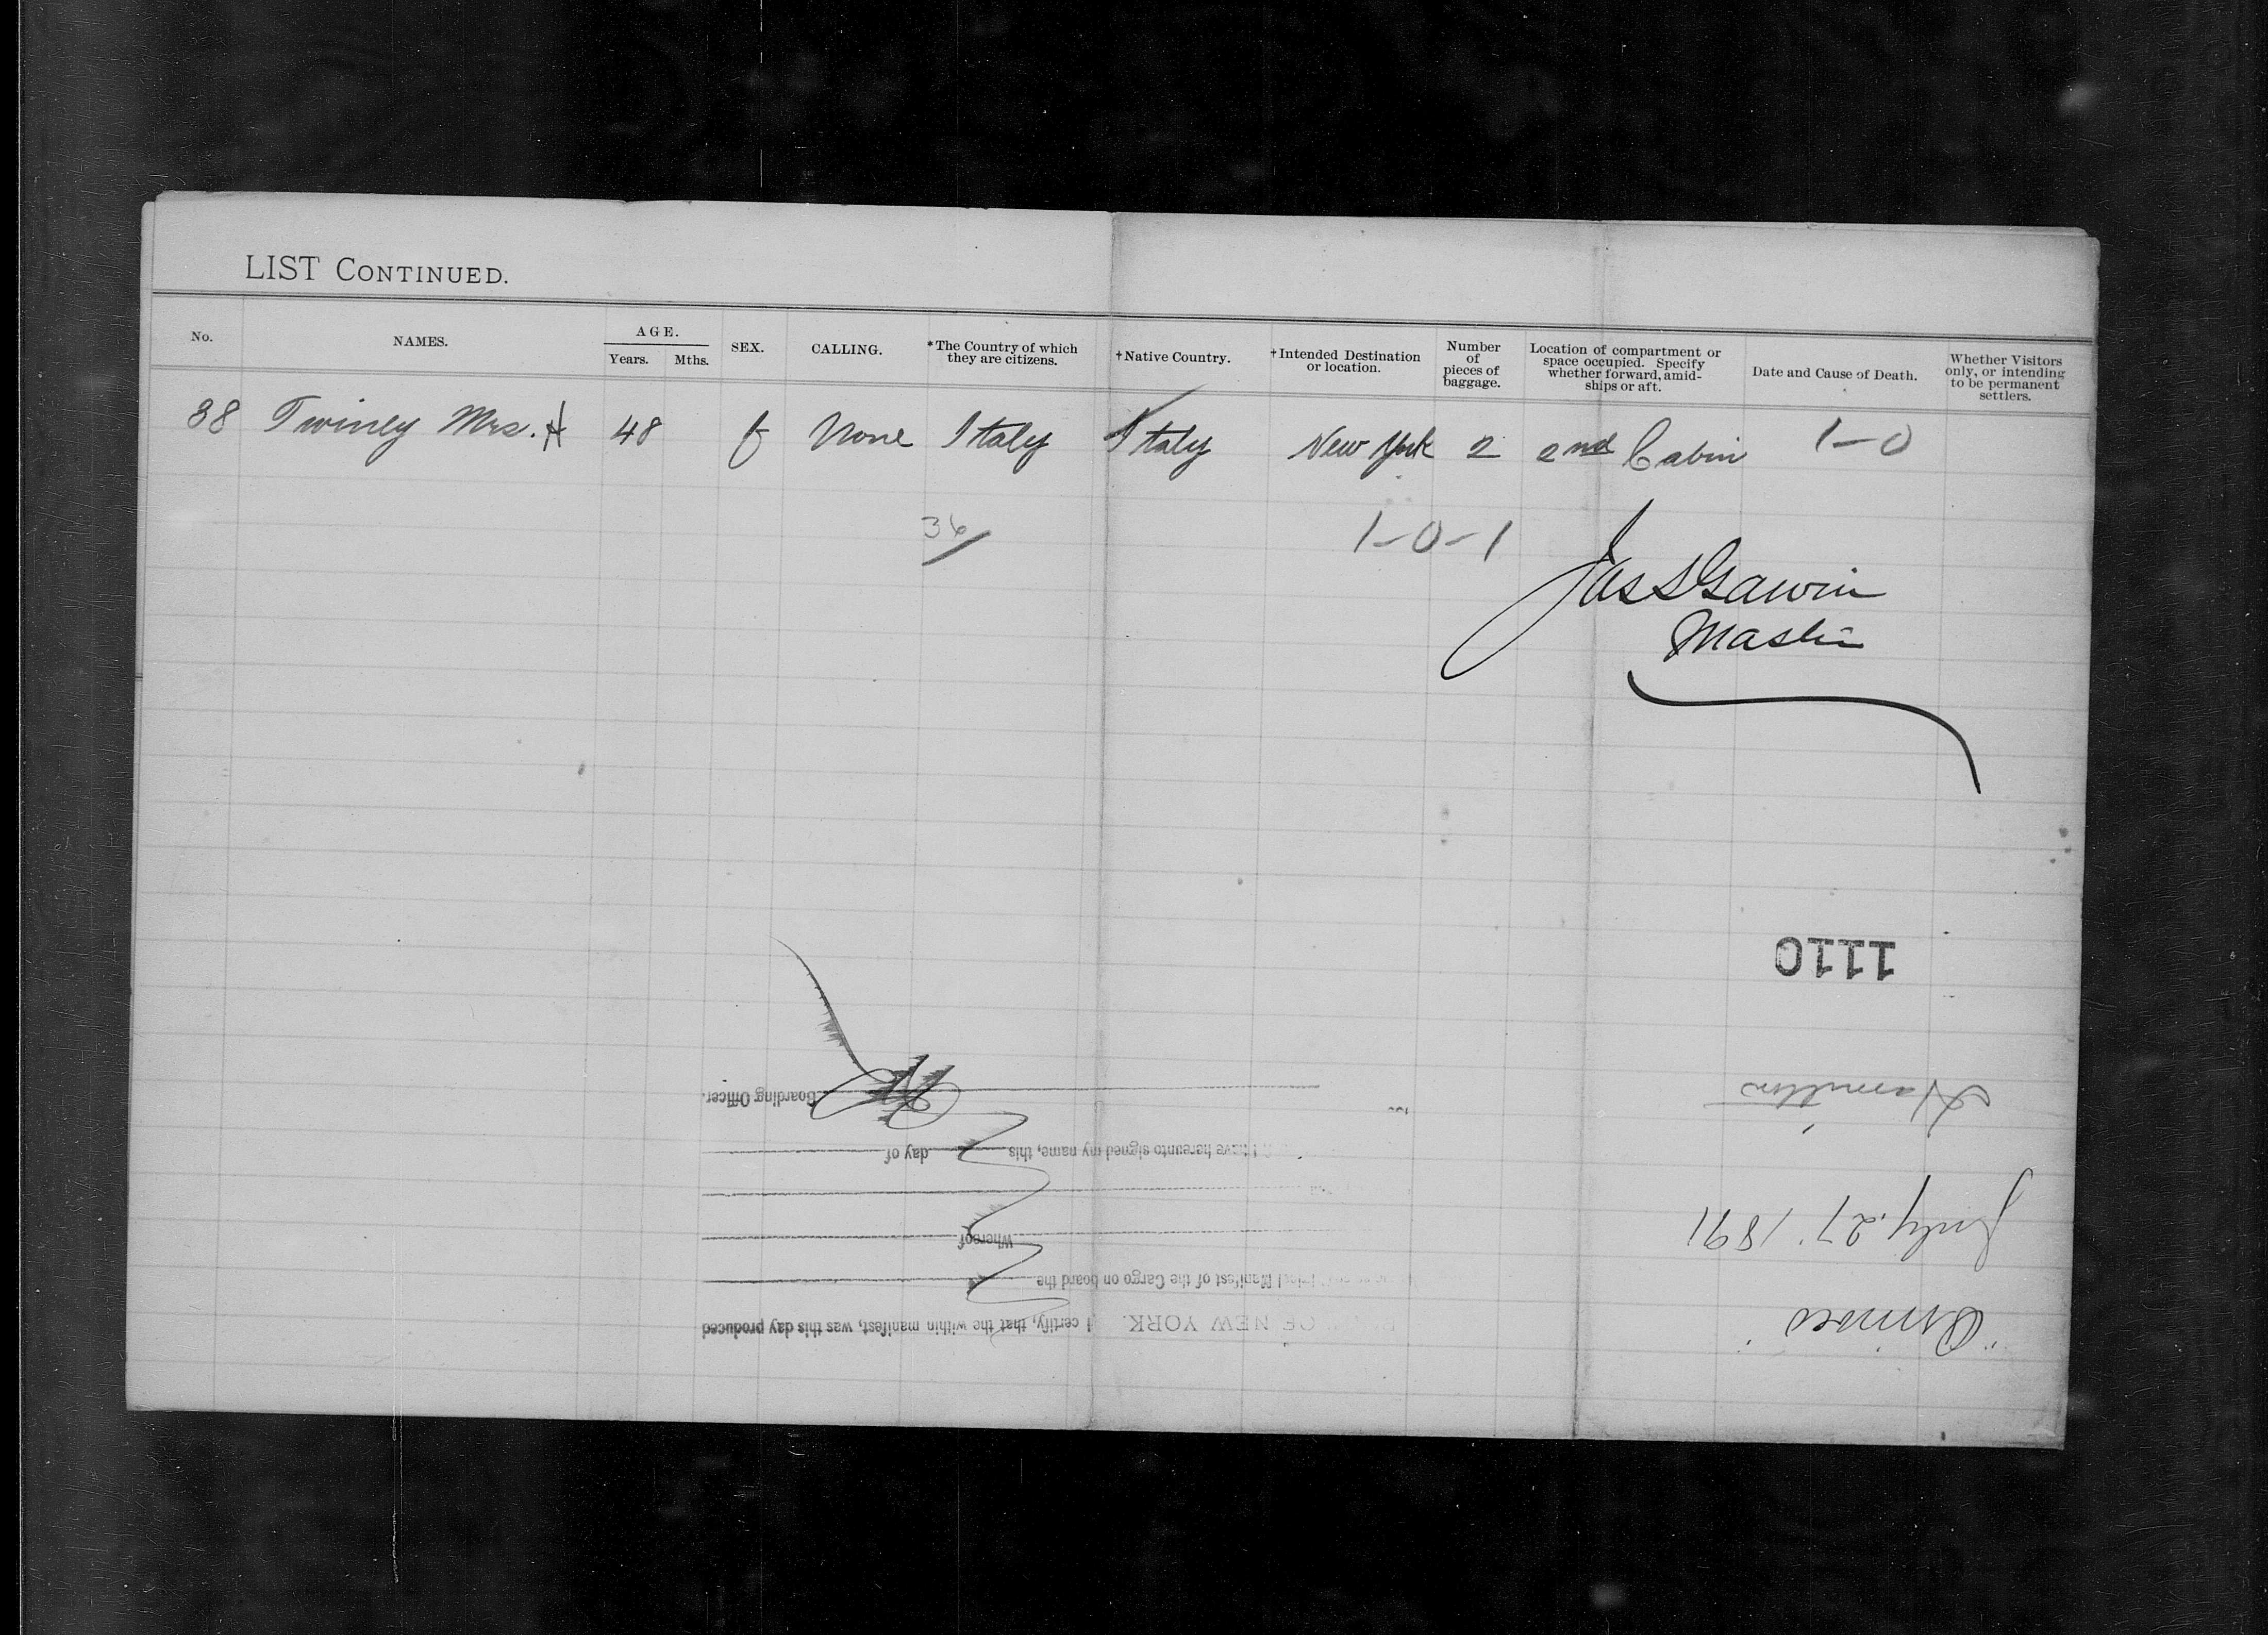 LIST CONTINUED.
No. NAMES. AGE. Years. Mths. SEX. CALLING. *The Country of which they are citizens. †Native Country. †Intended Destination or location. Number of pieces of baggage. Location of compartment or space occupied. Specify whether forward, amid-ships or aft. Date and Cause of Death. Whether Visitors only, or intending to be permanent settlers.
38 Twiney Mrs. A 48 f None Italy Italy New York 2 2nd Cabin 1-0
36/ 1-0-1
Jas S Garvin
Master
"Orinoco"
July. 27. 1891
Hamilton
1110
OF NEW YORK. I certify, that the within manifest, was this day produced
Manifest of the Cargo on board the
Whereof
I have hereunto signed my name, this day of
Boarding Officer.